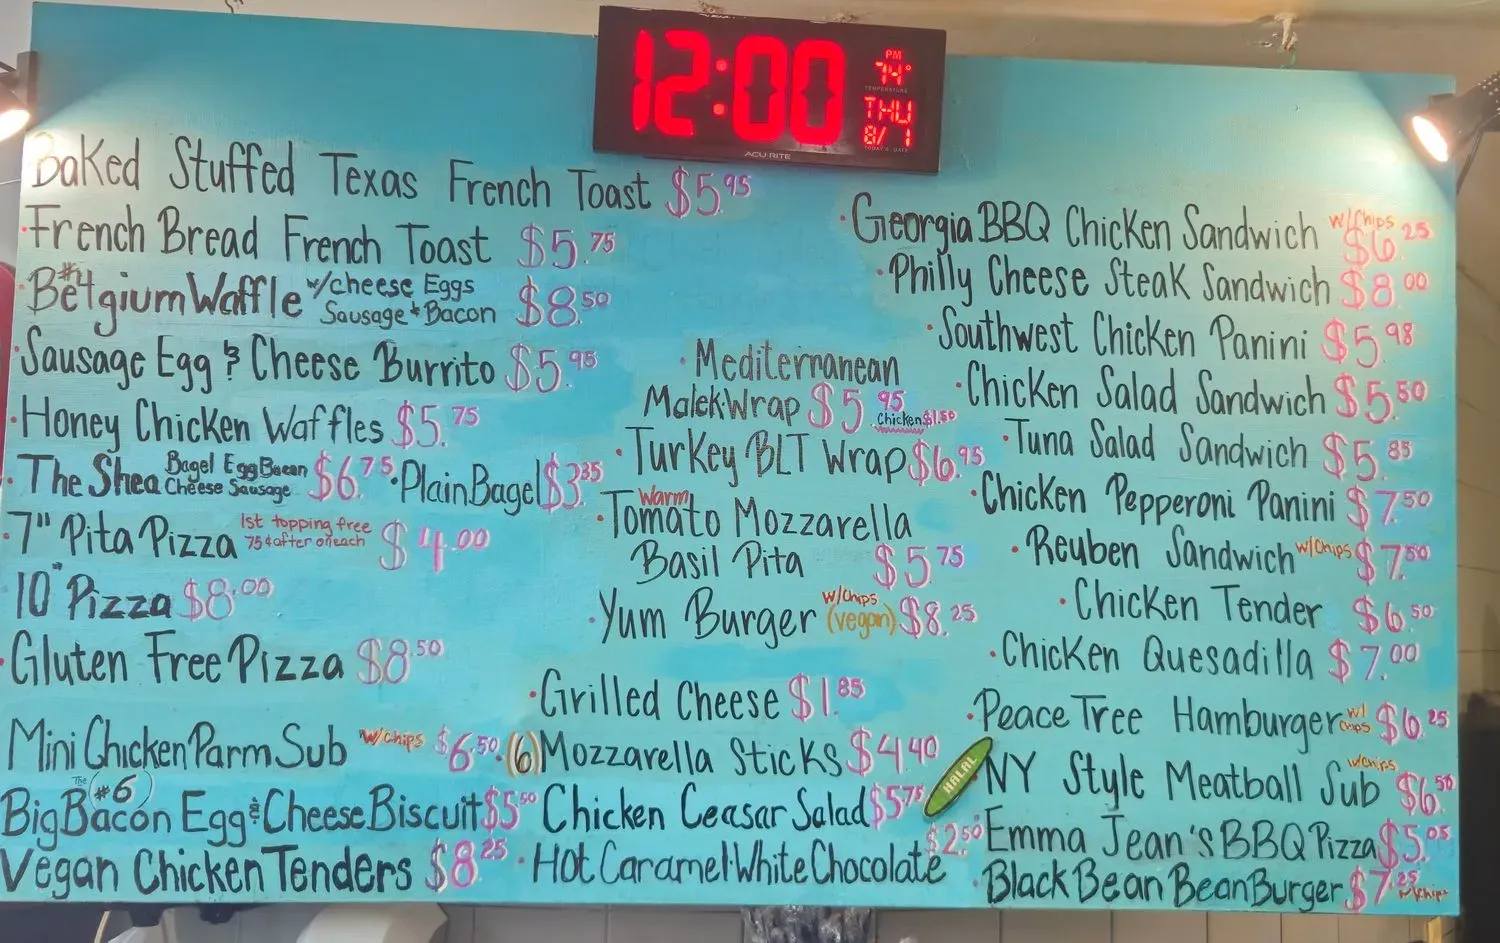 12:00
PM
74°
TEMPERATURE
THU
8/1
TODAY'S DATE
ACU RITE
Baked Stuffed Texas French Toast $5.95
French Bread French Toast $5.75
#4
Belgium Waffle w/cheese Eggs Sausage & Bacon $8.50
Sausage Egg & Cheese Burrito $5.95
Honey Chicken Waffles $5.75
The Shea Bagel Egg Bacon Cheese Sausage $6.75
Plain Bagel $3.35
7" Pita Pizza 1st topping free 75¢ after on each $4.00
10" Pizza $8.00
Gluten Free Pizza $8.50
Mini Chicken Parm Sub w/chips $6.50
The #6
Big Bacon Egg & Cheese Biscuit $5.50
Vegan Chicken Tenders $8.25
Mediterranean
Malek Wrap $5.95 Chicken $1.50
Turkey BLT Wrap $6.95
Warm
Tomato Mozzarella
Basil Pita $5.75
Yum Burger w/chips (vegan) $8.25
Grilled Cheese $1.85
(6) Mozzarella Sticks $4.40
Chicken Ceasar Salad $5.75
Hot Caramel White Chocolate $2.50
Georgia BBQ Chicken Sandwich w/Chips $6.25
Philly Cheese Steak Sandwich $8.00
Southwest Chicken Panini $5.98
Chicken Salad Sandwich $5.50
Tuna Salad Sandwich $5.85
Chicken Pepperoni Panini $7.50
Reuben Sandwich w/Chips $7.50
Chicken Tender $6.50
Chicken Quesadilla $7.00
Peace Tree Hamburger w/chips $6.25
HALAL
NY Style Meatball Sub w/chips $6.50
Emma Jean's BBQ Pizza $5.05
Black Bean Bean Burger $7.25 w/chips